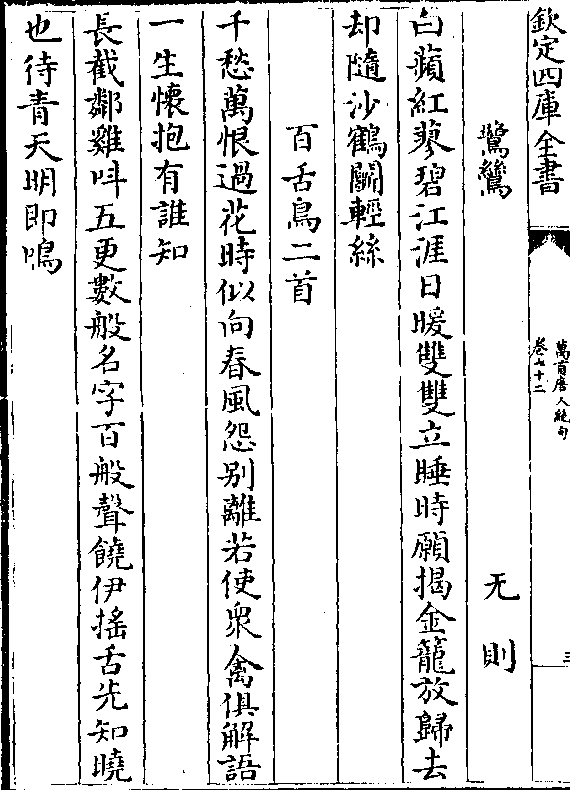 欽定四庫全書
萬首唐人絶句
卷七十二
三
鷺鷥
无則
白蘋紅蓼碧江涯日暖雙雙立睡時願揭金籠放歸去
却隨沙鶴鬬輕絲
百舌鳥二首
千愁萬恨過花時似向春風怨别離若使衆禽俱解語
一生懷抱有誰知
長截鄰雞叫五更數般名字百般聲饒伊摇舌先知曉
也待青天明即鳴